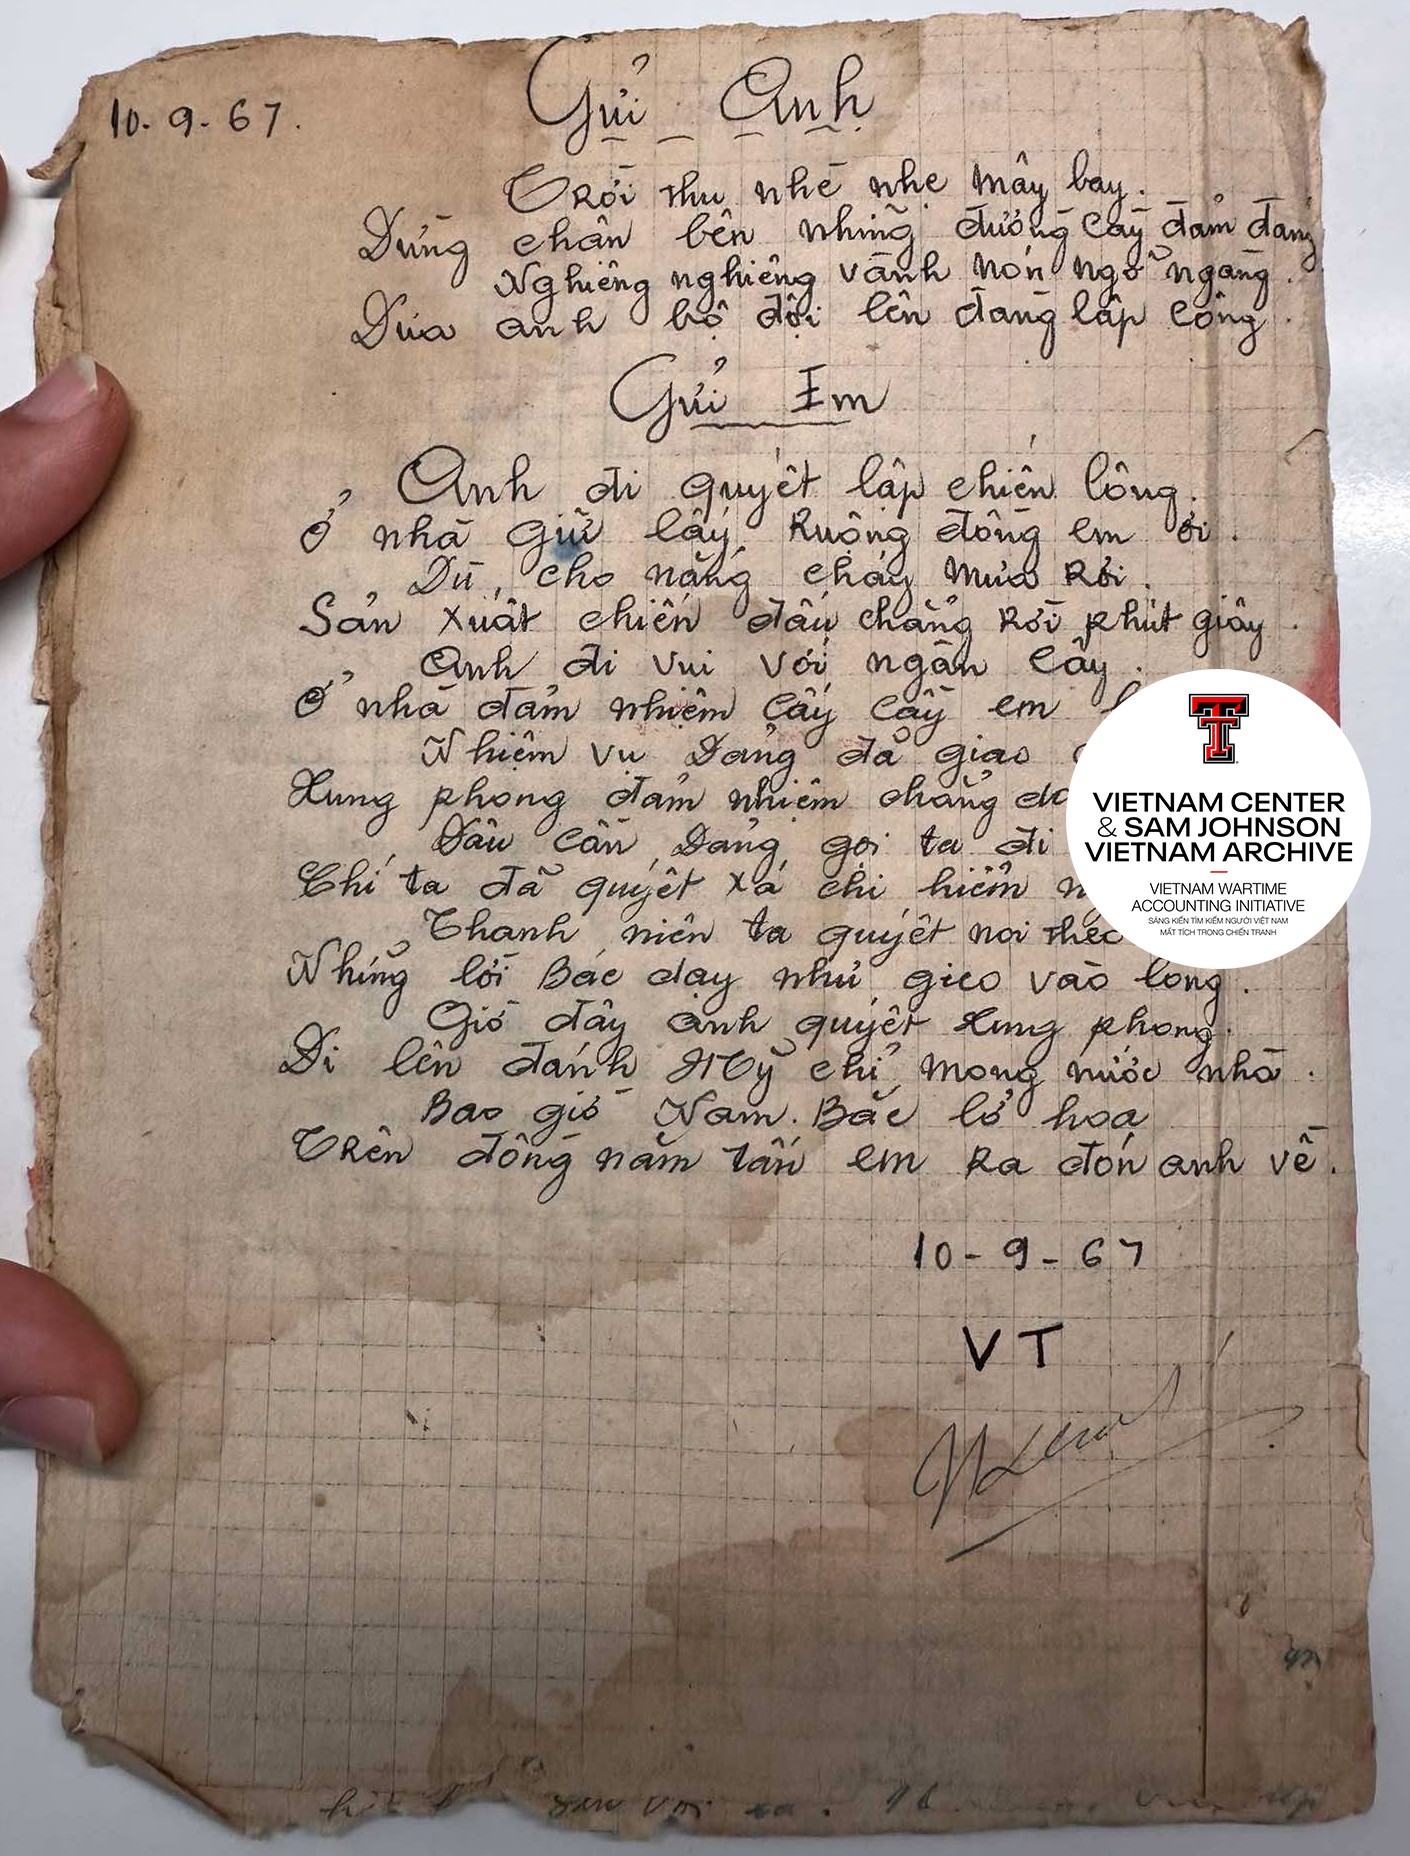 10-9-67.
Gửi Anh
Trời thu nhè nhẹ mây bay.
Dừng chân bên những đường cày đảm đang
Nghiêng nghiêng vành nón ngỡ ngàng.
Đưa anh bộ đội lên đàng lập công.
Gửi Em
Anh đi quyết lập chiến công.
Ở nhà giữ lấy ruộng đồng em ơi.
Dù cho nắng cháy mưa rơi.
Sản xuất chiến đấu chẳng rời phút giây.
Anh đi vui với ngàn cây.
Ở nhà đảm nhiệm cấy cầy em
Nhiệm vụ Đảng đã giao
Xung phong đảm nhiệm chẳng
Dầu cần Đảng gọi ta đi
Chí ta đã quyết xá chi hiểm
Thanh niên ta quyết noi theo
Những lời Bác dạy như gieo vào lòng.
Giờ đây anh quyết xung phong.
Đi lên đánh Mỹ chỉ mong nước nhà.
Bao giờ Nam. Bắc lở hoa
Trên đồng năm tấn em ra đón anh về.
10-9-67
VT
VIETNAM CENTER
& SAM JOHNSON
VIETNAM ARCHIVE
VIETNAM WARTIME
ACCOUNTING INITIATIVE
SÁNG KIẾN TÌM KIẾM NGƯỜI VIỆT NAM
MẤT TÍCH TRONG CHIẾN TRANH